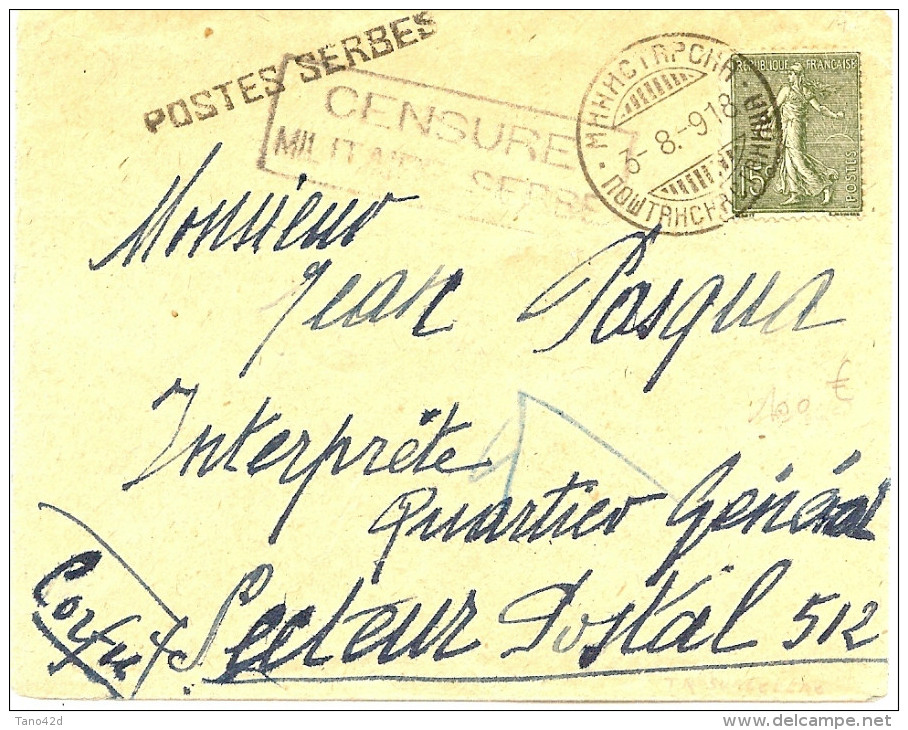 POSTES SERBES
CENSURE
MILITAIRE SERBE
3-8-918
REPUBLIQUE FRANÇAISE
15c
POSTES
Monsieur
Jean Pasqua
Interprète
Quartier Général
Secteur Postal 512
Corfu
100 €
Tano42d
www.delcampe.net